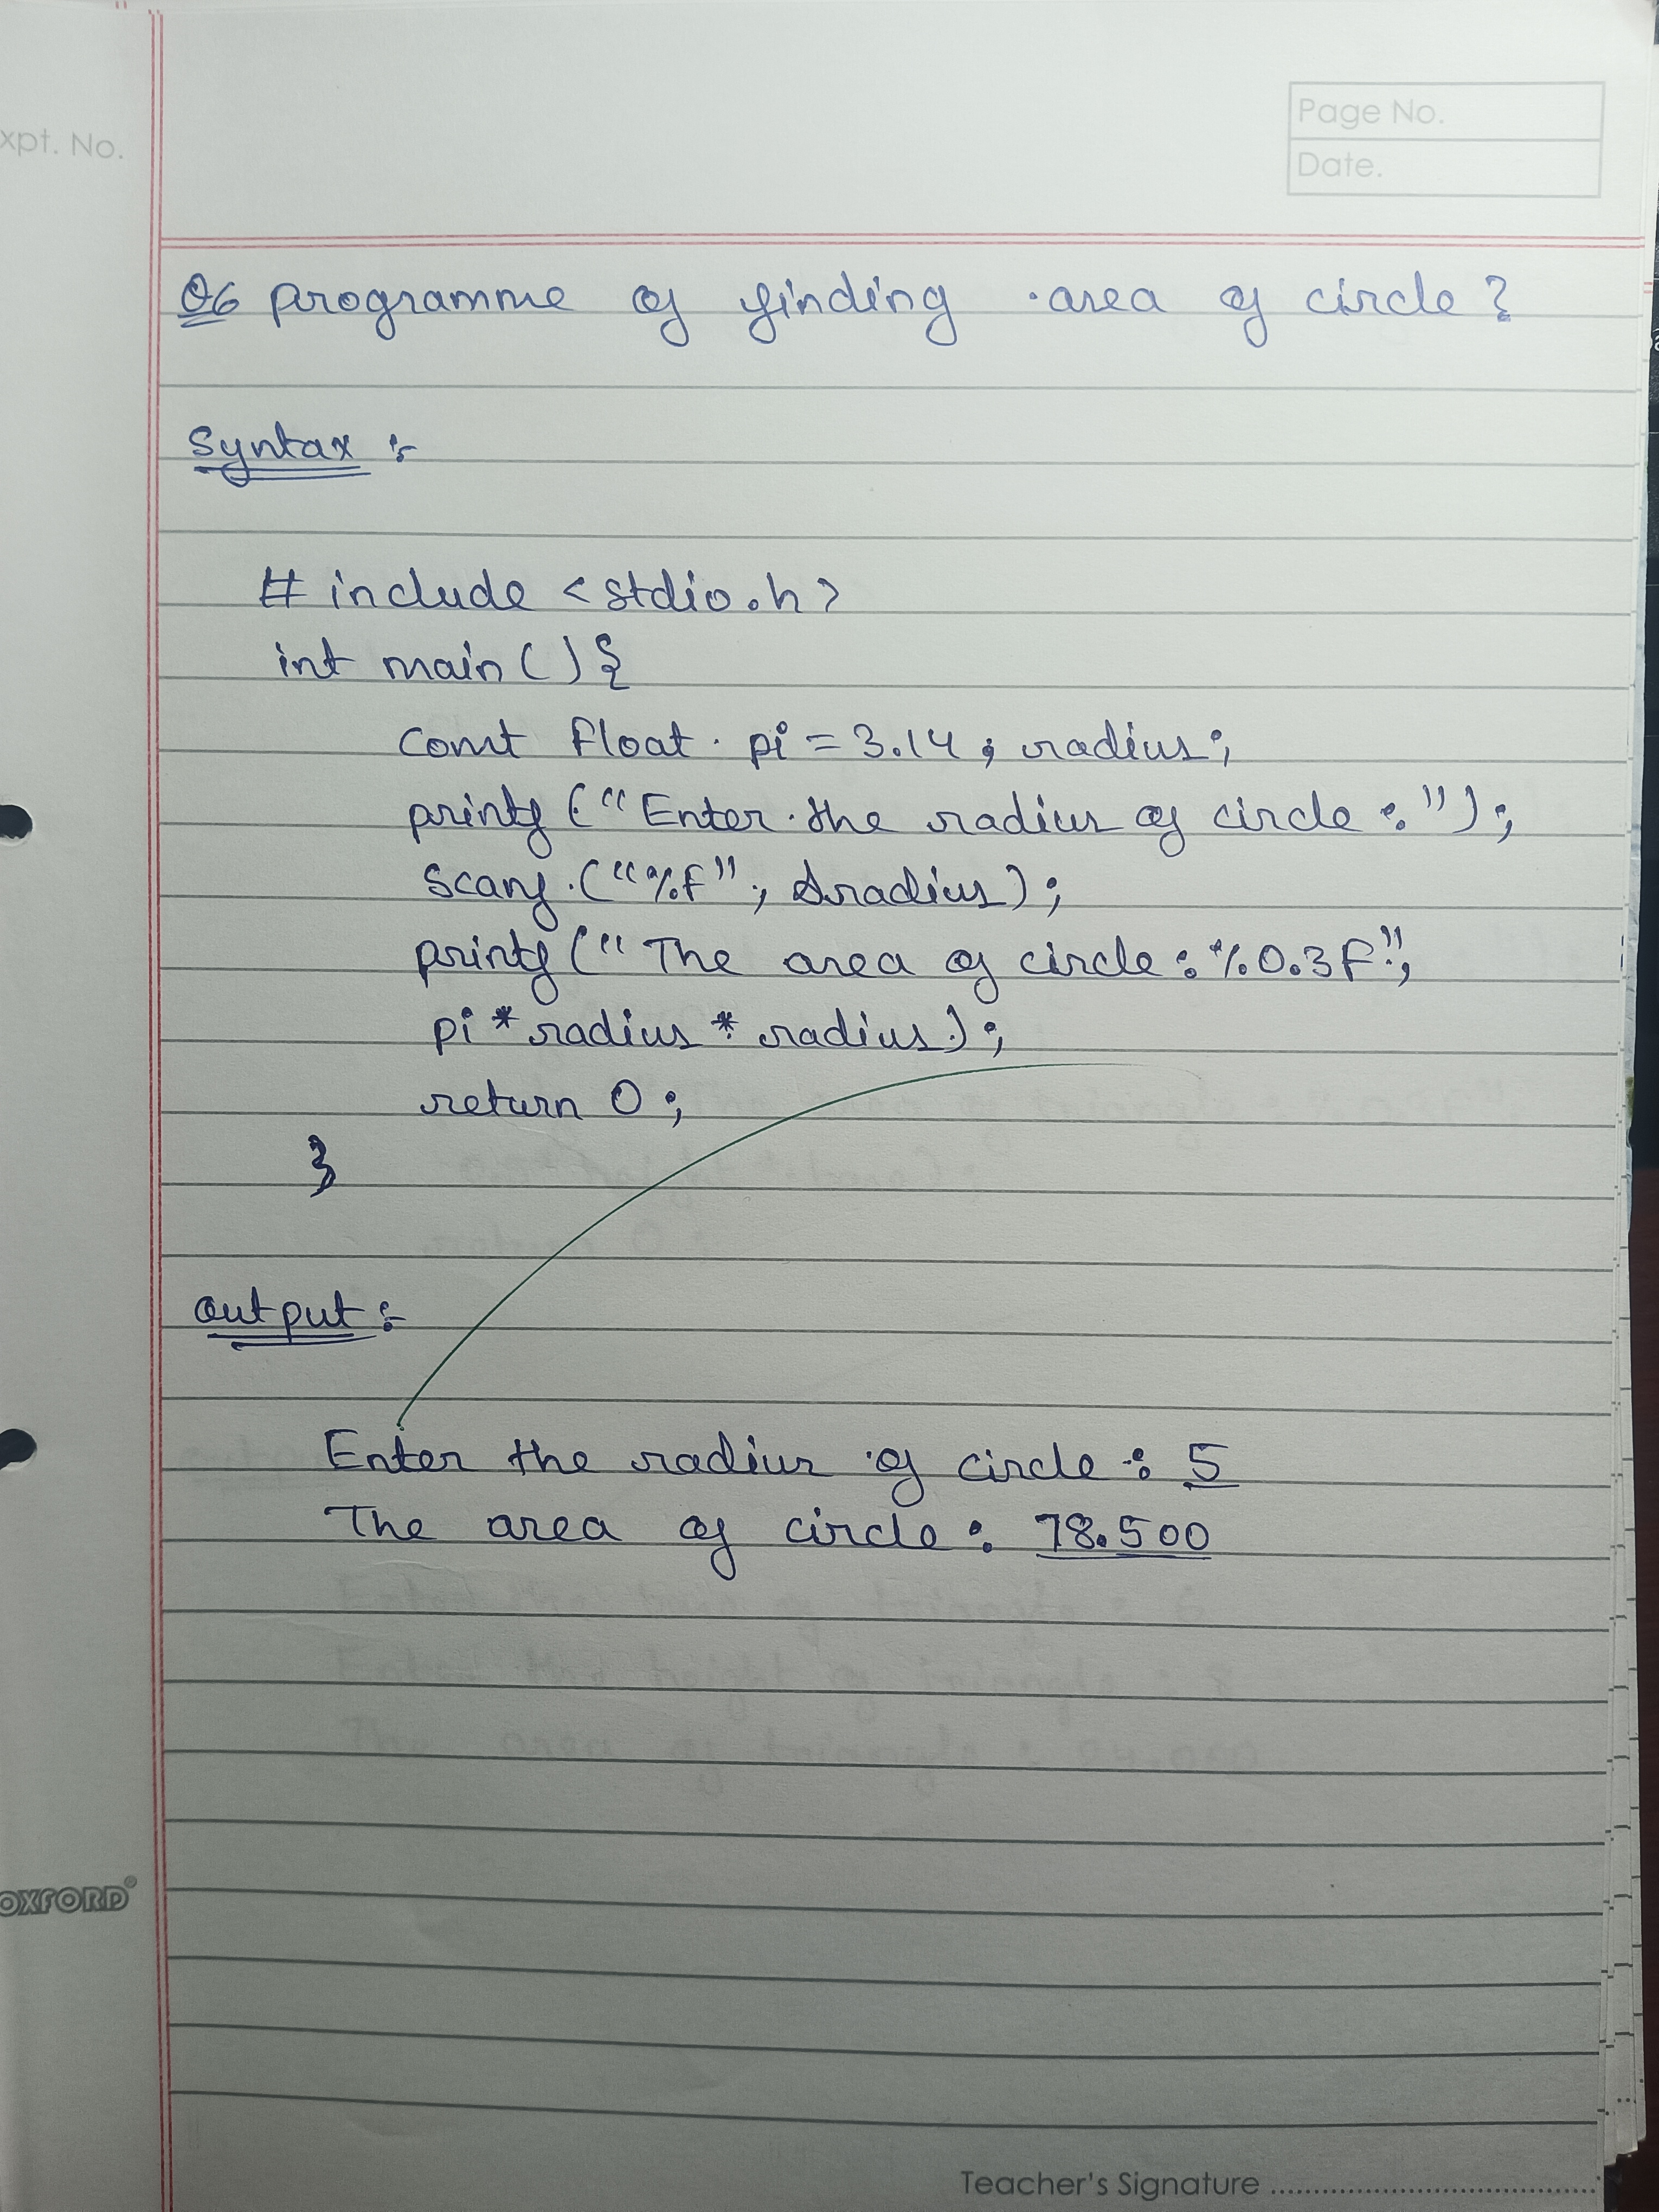 xpt. No.
Page No.
Date.
Q6 programme of finding area of circle?
Syntax :-
# include <stdio.h>
int main () {
const float pi = 3.14, radius;
printf ("Enter the radius of circle : ");
scanf ("%f", &radius);
printf (" The area of circle : %0.3f",
pi * radius * radius);
return 0;
}
output :-
Enter the radius of circle : 5
The area of circle : 78.500
OXFORD
Teacher's Signature